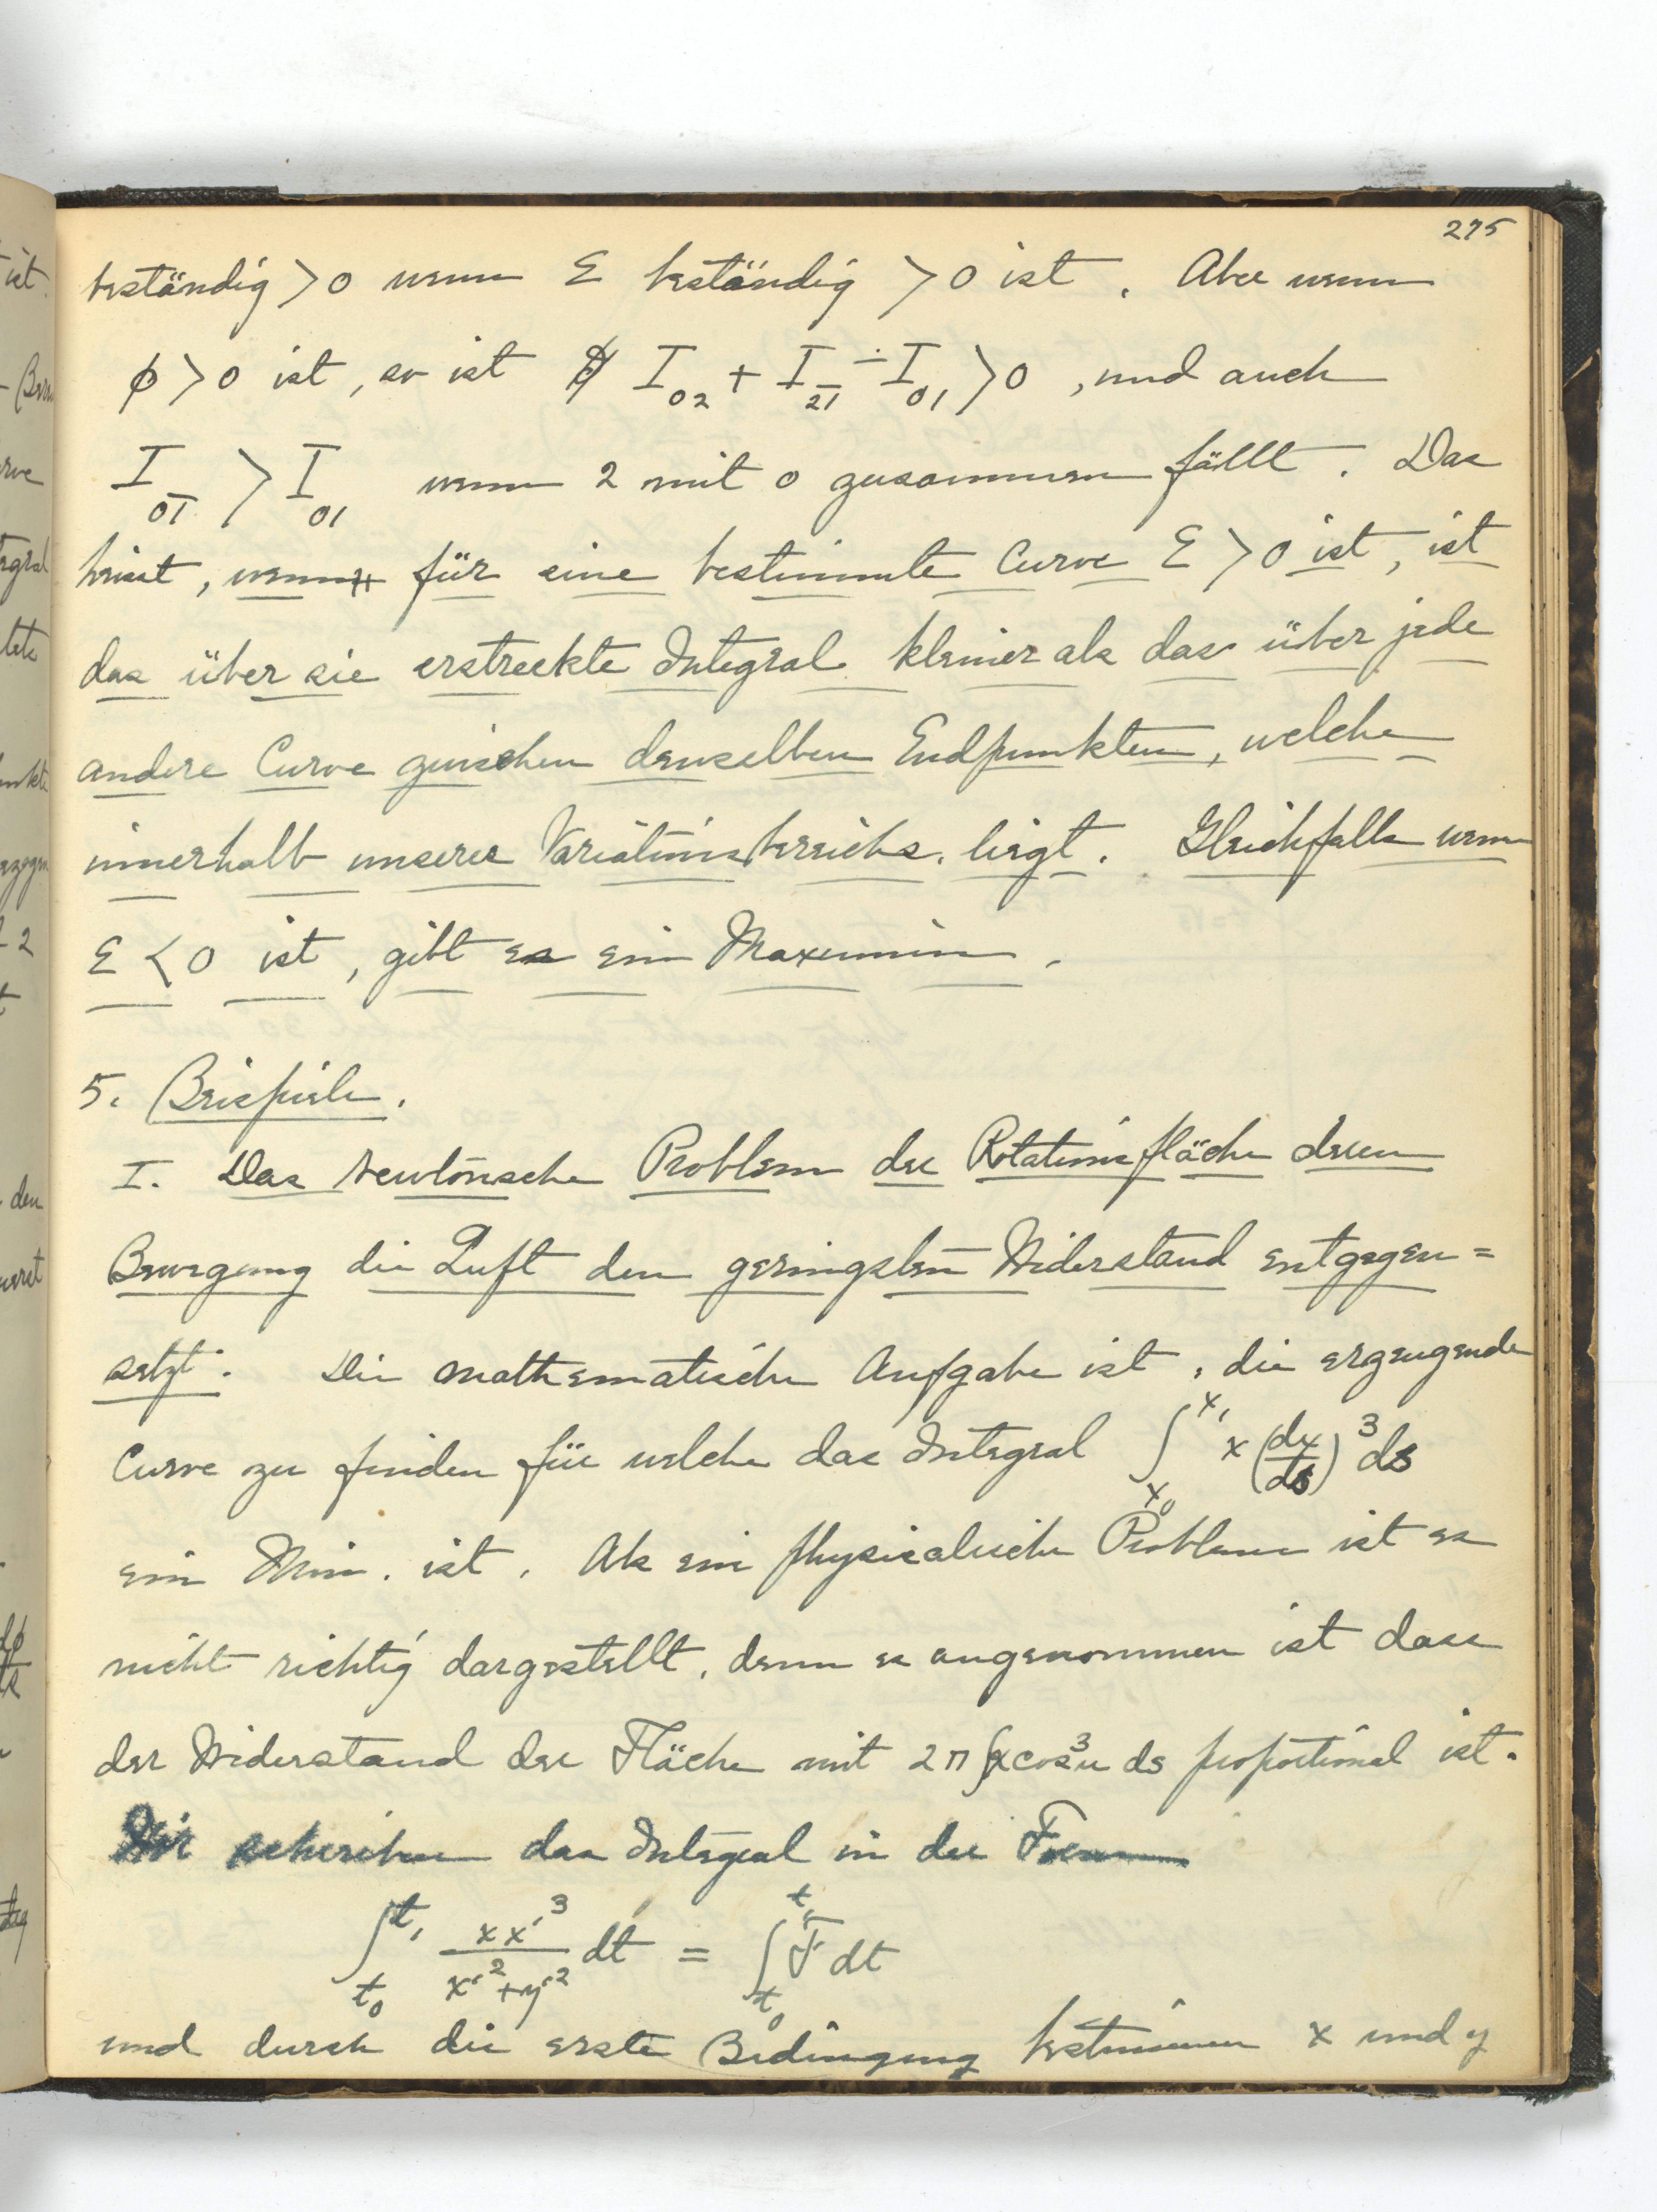 275
beständig > 0 wenn ε beständig > 0 ist. Aber wenn
ϕ > 0 ist, so ist I₀₂ + I₂₁̄ - I₀₁ > 0, und auch
I₀₁̄ > I₀₁ wenn 2 mit 0 zusammen fällt. Das
heisst, wenn für eine bestimmte Curve ε > 0 ist, ist
das über sie erstreckte Integral kleiner als das über jede
andere Curve zwischen denselben Endpunkten, welche
innerhalb unseres Variationsbereichs liegt. Gleichfalls wenn
ε < 0 ist, gibt es ein Maximum.
5. Beispiele.
I. Das Newtonsche Problem der Rotationsfläche deren
Bewegung die Luft den geringsten Widerstand entgegen=
setzt. Die mathematische Aufgabe ist, die erzeugende
Curve zu finden für welche das Integral ∫ₓ₀ˣ¹ x(dx/ds)³ds
ein Min. ist. Als ein physicalische Problem ist es
nicht richtig dargestellt, denn es angenommen ist dass
der Widerstand der Fläche mit 2π∫x cos³u ds proportional ist.
Wir schreiben das Integral in der Form
∫ₜ₀ᵗ¹ xx'³/(x'²+y'²) dt = ∫ₜ₀ᵗ¹ F dt
und durch die erste Bedingung bestimmen x und y